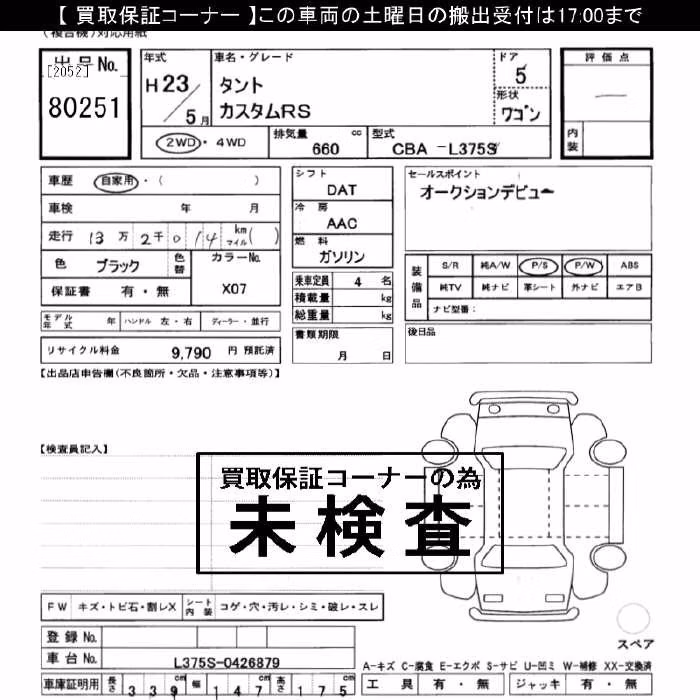 【 買取保証コーナー 】この車両の土曜日の搬出受付は17:00まで
(複合機)対応用紙
出品No.
[2052]
80251
年式
H23/5月
車名・グレード
タント
カスタムRS
ドア
5
形状
ワゴン
2WD・4WD
排気量 660 cc
型式 CBA -L375S
評価点
内装
車歴 自家用・( )
車検 年 月
走行 13万2千014 km マイル( )
色 ブラック 色替
カラーNo. X07
保証書 有・無
シフト
DAT
冷房
AAC
燃料
ガソリン
乗車定員 4 名
積載量 kg
総重量 kg
セールスポイント
オークションデビュー
装備品
S/R 純A/W P/S P/W ABS
純TV 純ナビ 革シート 外ナビ エアB
ナビ型番:
モデル年式 年 ハンドル 左・右 ディーラー・並行
書類期限
月 日
後日品
リサイクル料金 9,790 円 預託済
【出品店申告欄(不良箇所・欠品・注意事項等)】
【検査員記入】
買取保証コーナーの為
未検査
FW キズ・トビ石・割レX シート内装 コゲ・穴・汚レ・シミ・破レ・スレ
登録No.
車台No. L375S-0426879
車庫証明用 長さ 339cm 幅 147cm 高さ 175cm
スペア
A-キズ C-腐食 E-エクボ S-サビ U-凹ミ W-補修 XX-交換済
工具 有・無 ジャッキ 有・無